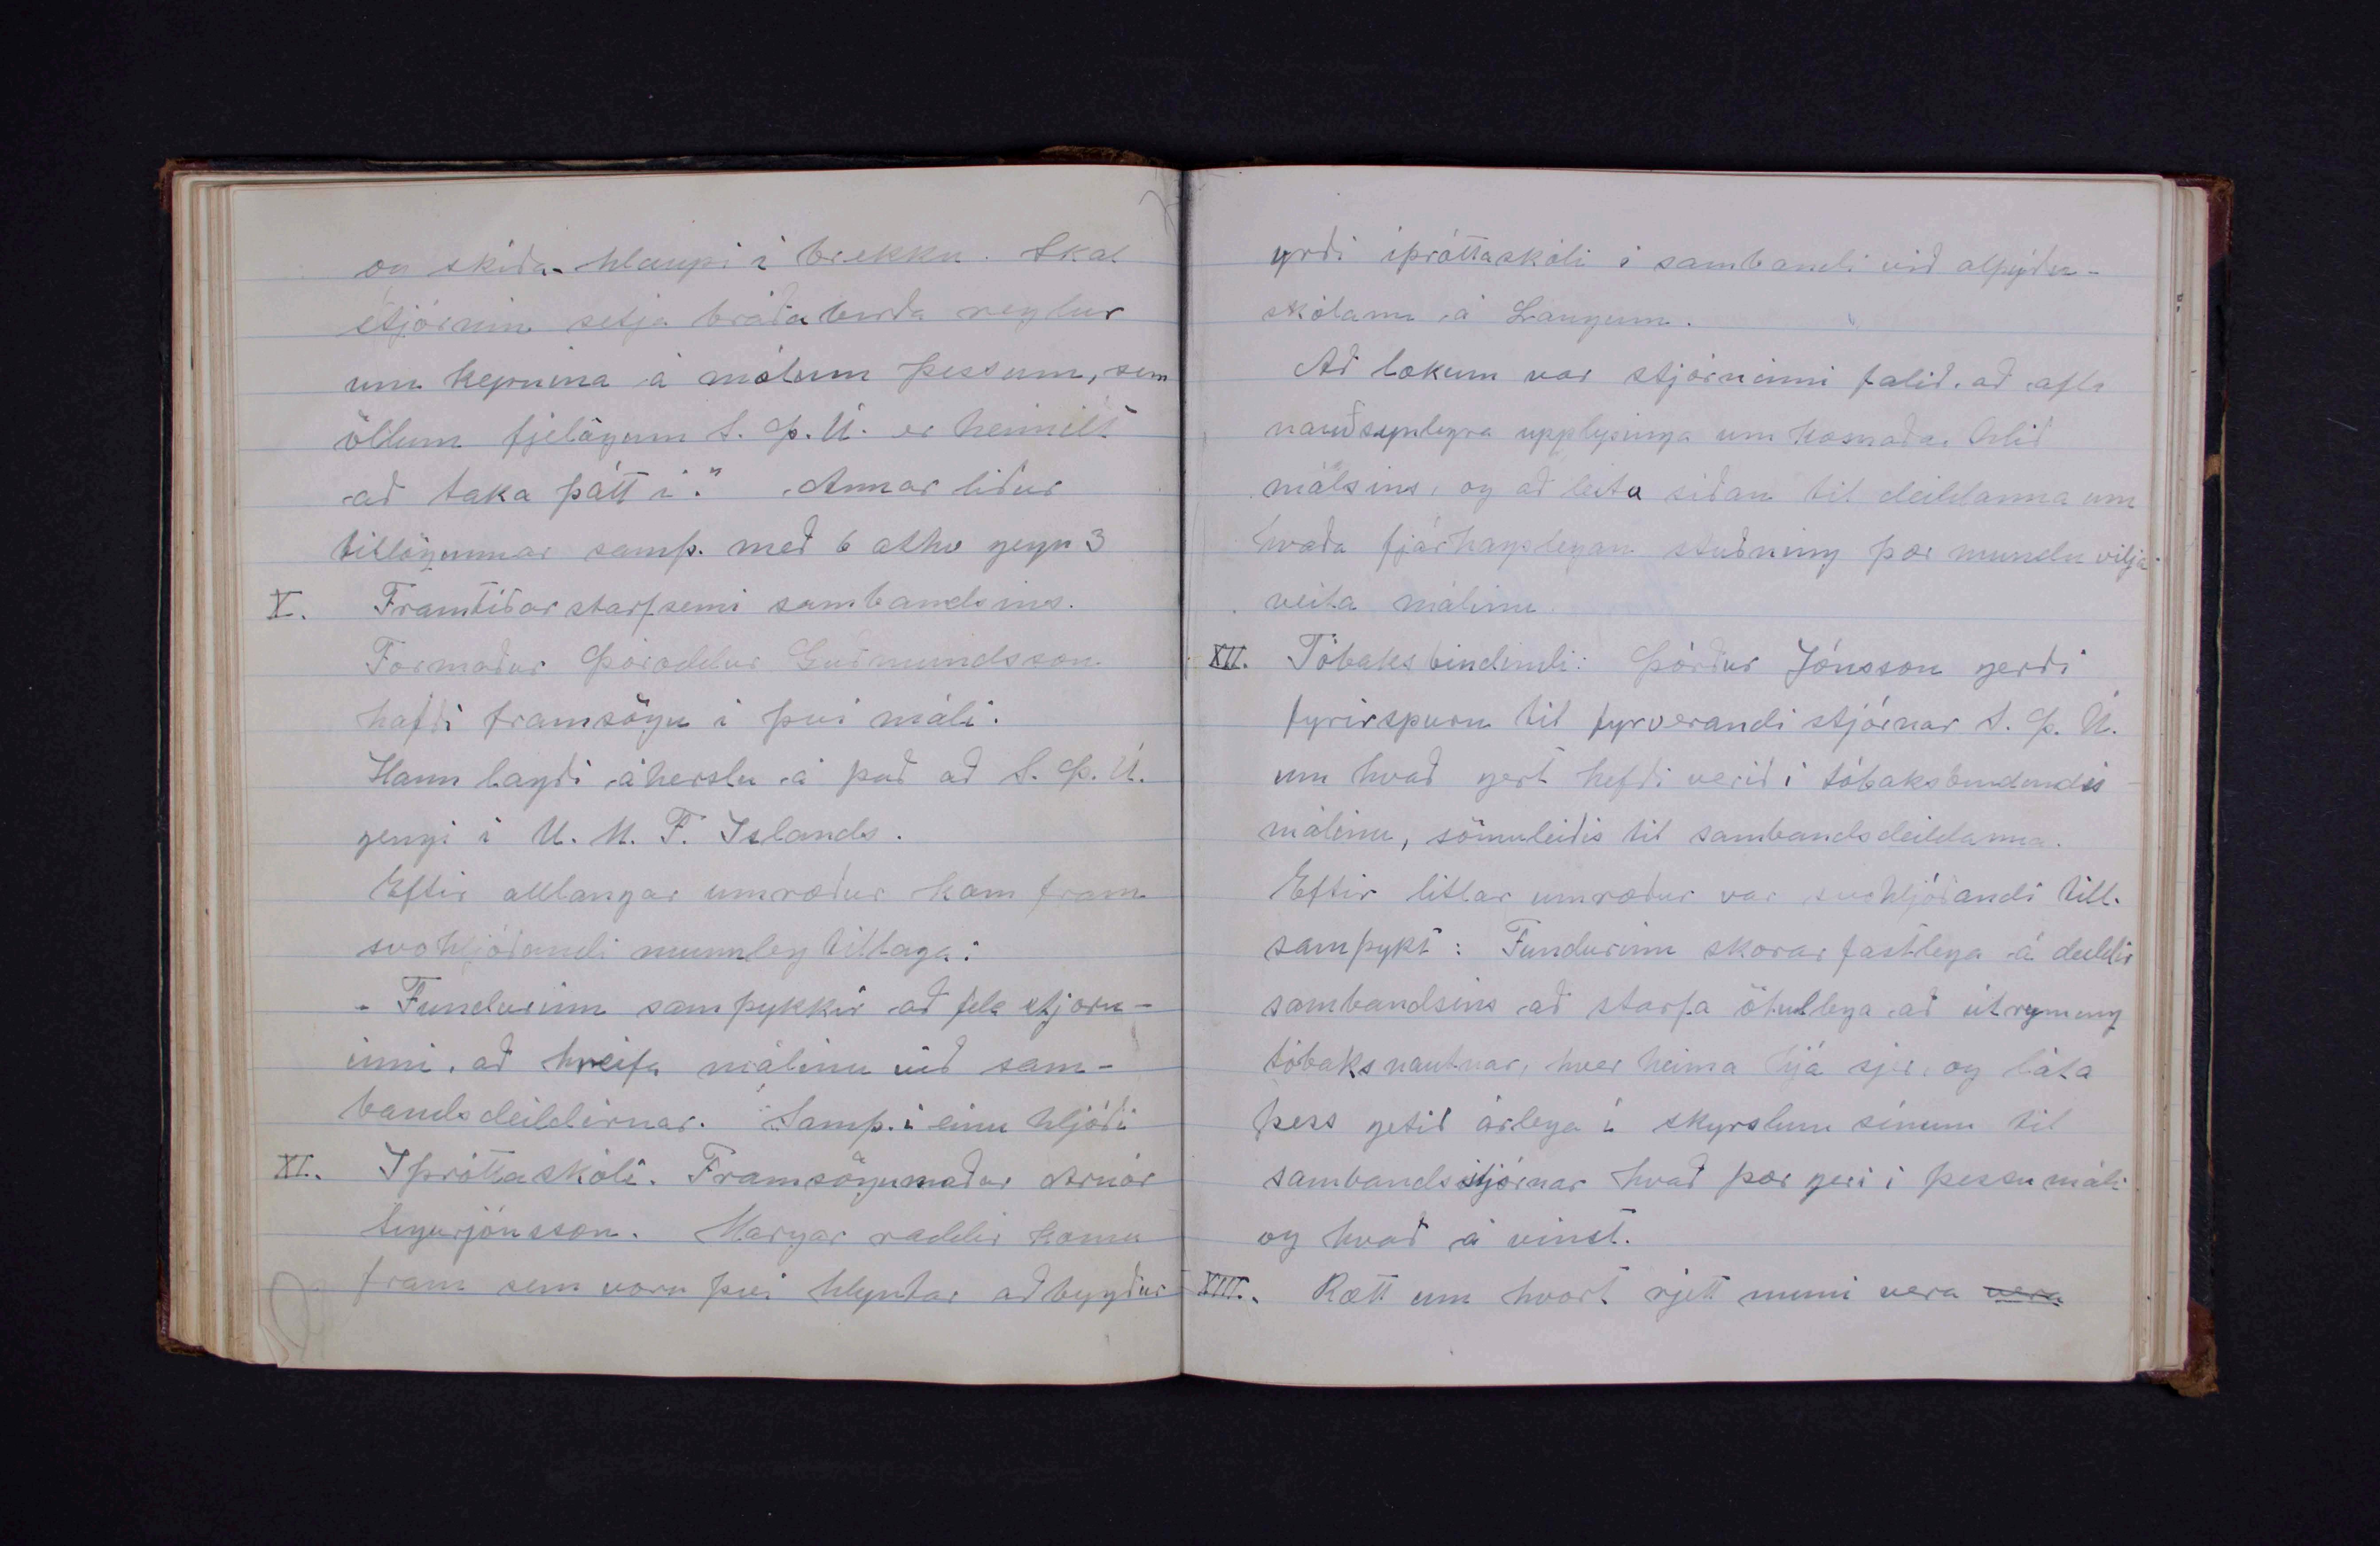 og skíða-hlaupi í brekku. Skal
stjórnin setja bráðabirða reglur
um kepnina á mótum þessum, sem
öllum fjelögum S. Þ. U. er heimilt
að taka þátt í." Annar liður
tillögunnar samþ. með 6 atkv gegn 3
X. Framtíðarstarfsemi sambandsins.
Formaður Þóroddur Guðmundsson
hafði framsögu í því máli.
Hann lagði áherslu á það að S. Þ. U.
gengi í U. M. F. Íslands.
Eftir alllangar umræður kom fram
svohljóðandi munnleg tillaga:
"Fundurinn samþykkir að fela stjórn-
inni, að hreifa málinu við sam-
bandsdeildirnar. Samþ. í einu hljóði
XI. Íþróttaskóli. Framsögumaður Arnór
Sigurjónsson. Margar raddir komu
fram sem voru því hlyntar að bygður
yrði íþróttaskóli í sambandi við alþýðu-
skólann á Laugum.
Að lokum var stjórninni falið, að afla
nauðsynlegra upplýsinga um kosnaðar hlið
málsins, og að leita síðan til deildanna um
hvaða fjárhagslegan stuðning þær mundu vilja
veita málinu.
XII. Tóbaksbindindi: Þórður Jónsson gerði
fyrirspurn til fyrverandi stjórnar S. Þ. U.
um hvað gert hefði verið í tóbaksbindindis-
málinu, sömuleiðis til sambandsdeildanna.
Eftir litlar umræður var svohljóðandi till.
samþykt: Fundurinn skorar fastlega á deildir
sambandsins að starfa ötullega að útrýming
tóbaksnautnar, hver heima hjá sjer, og láta
þess getið árlega í skýrslum sínum til
sambandsstjórnar hvað þær geri í þessu máli
og hvað á vinst.
XIII. Rætt um hvort rjett muni vera vera